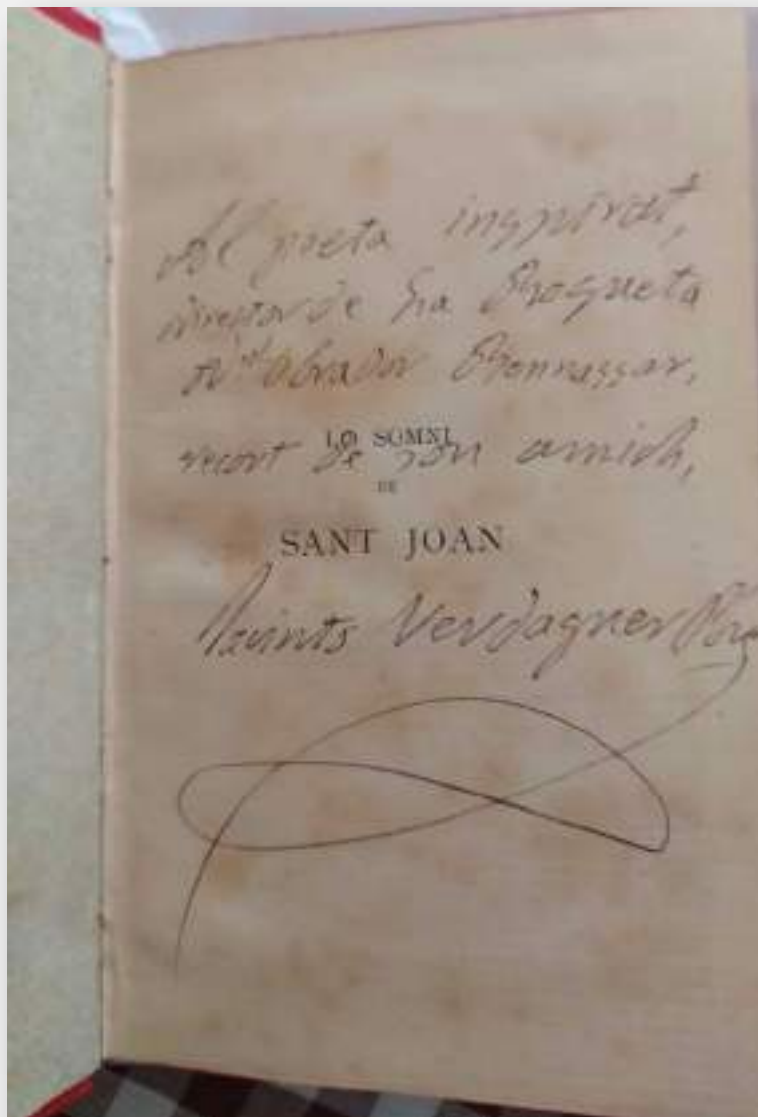 Al poeta inspirat,
director de La Roqueta
Obrador Bennassar,
LO SOMNI
recort de son amich,
DE
SANT JOAN
Jacinto Verdaguer Pbre